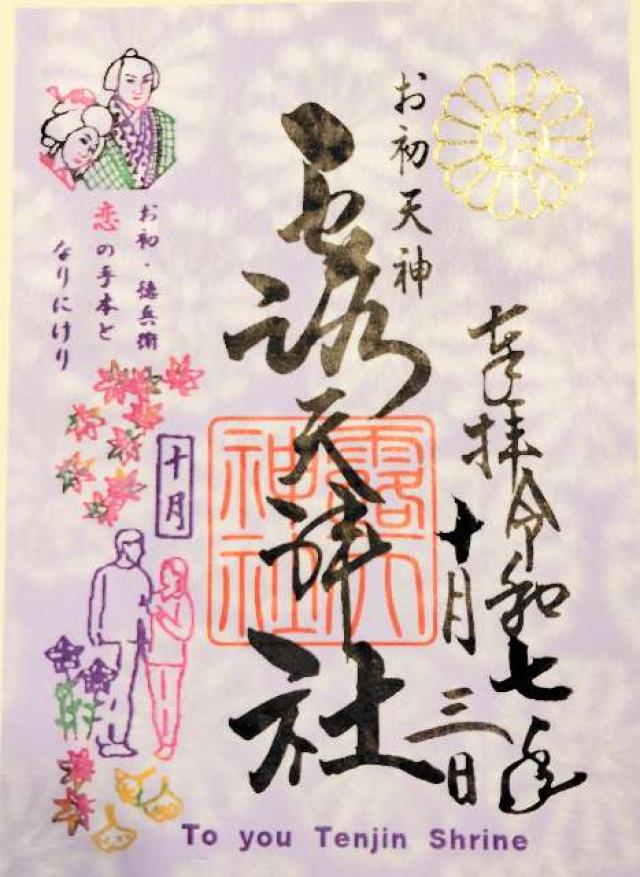 奉拝令和七年
十月三日
お初天神
露天神社
露天
神社
お初・徳兵衛
恋の手本と
なりにけり
十月
To you Tenjin Shrine